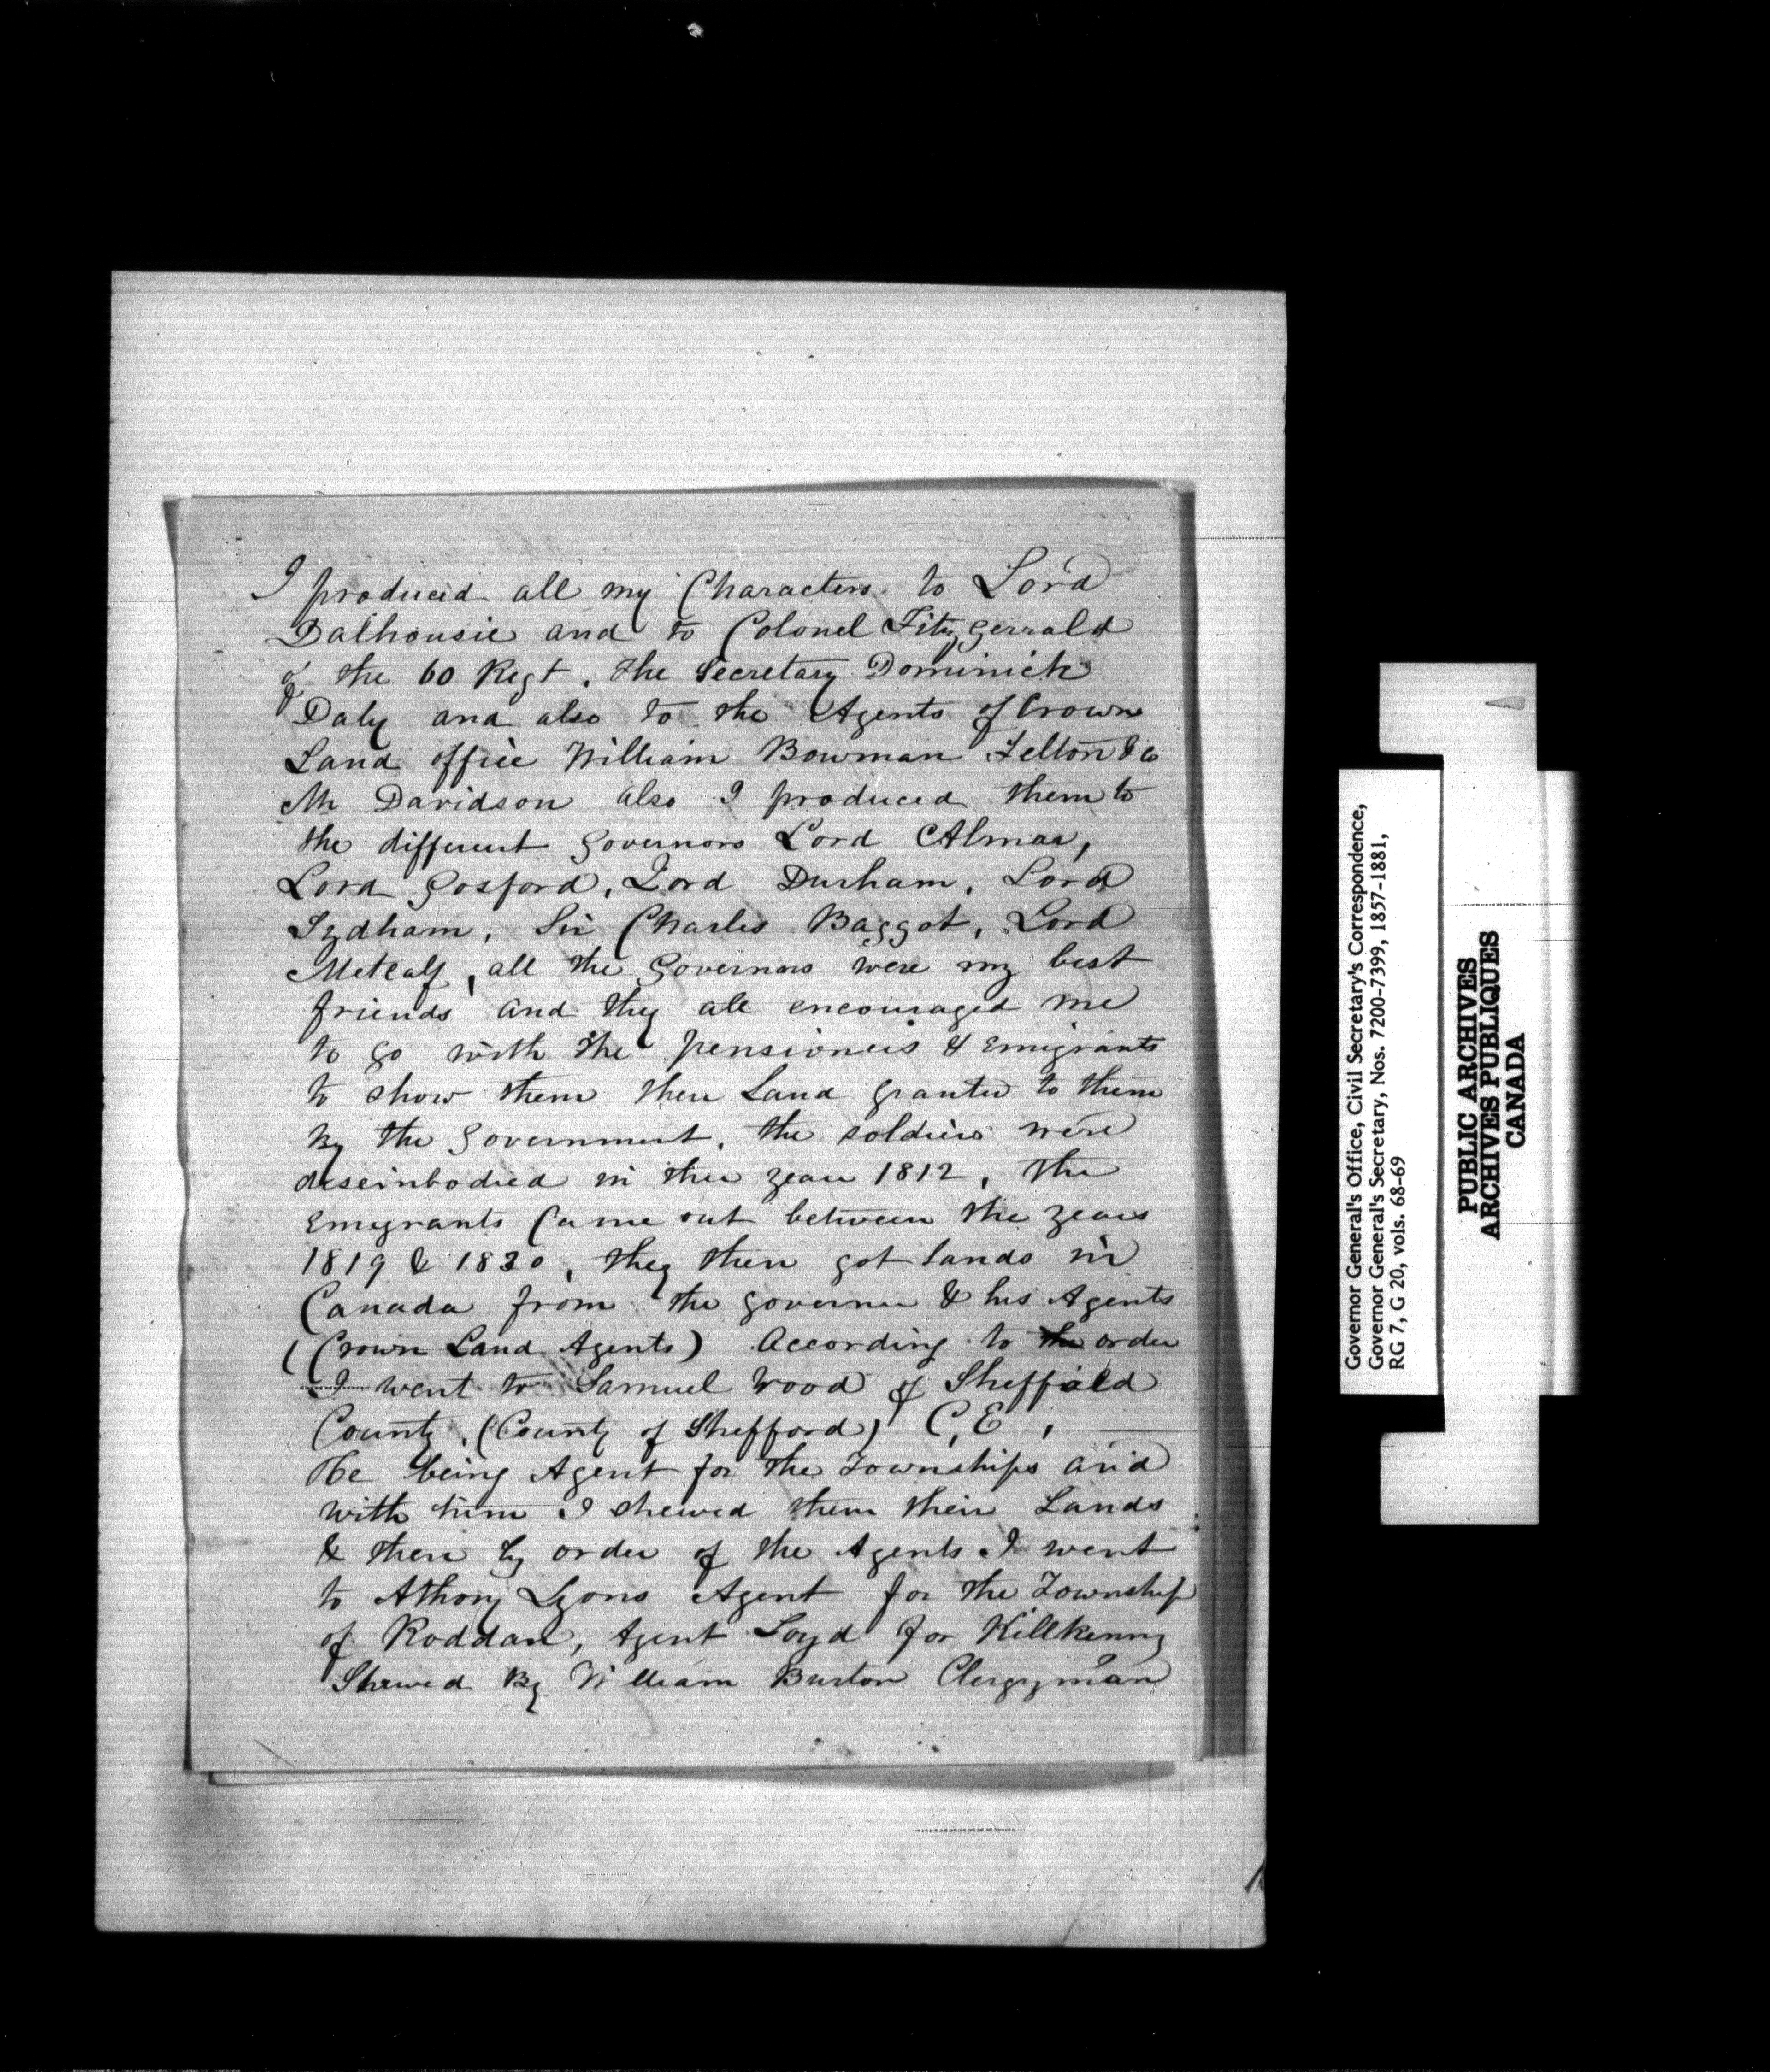 I produced all my Characters to Lord
Dalhousie and to Colonel Fitzgerrald
of the 60 Regt. the Secretary Dominick
Daly and also to the Agents of Crown
Land office William Bowman Felton & Co
Mr Davidson also I produced them to
the different Governors Lord Almaa,
Lord Gosford, Lord Durham, Lord
Sydham, Sir Charles Baggot, Lord
Metcalf, all the Governors were my best
friends and they all encouraged me
to go with the pensioners & Emigrants
to show them their Land granted to them
By the Government, the soldiers were
deseinbodied in the year 1812, the
Emigrants Came out between the years
1819 & 1830, they then got lands in
Canada from the governer & his Agents
(Crown Land Agents) According to the order
I went to Samuel Wood of Sheffield
County, (County of Shefford) C, E,
He being Agent for the Townships and
with him I shewed them their Lands
& then by order of the Agents I went
to Athony Lyons Agent for the Township
of Roddan, Agent Loyd for Killkenny
Shewed By William Burton Clergyman
Governor General's Office, Civil Secretary's Correspondence,
Governor General's Secretary, Nos. 7200-7399, 1857-1881,
RG 7, G 20, vols. 68-69
PUBLIC ARCHIVES
ARCHIVES PUBLIQUES
CANADA